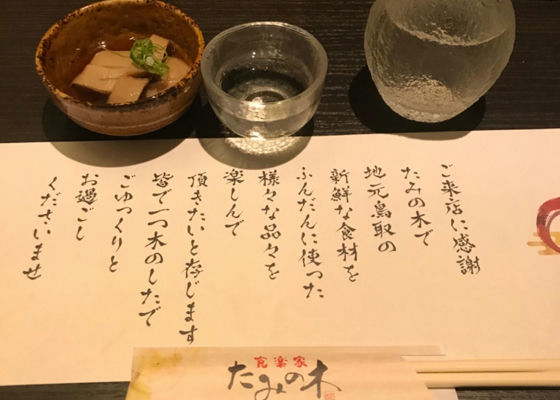 ご来店に感謝
たみの木で
地元鳥取の
新鮮な食材を
ふんだんに使った
様々な品々を
楽しんで
頂きたいと存じます
皆で一つ木のしたで
ごゆっくりと
お過ごし
くださいませ
食楽家
たみの木